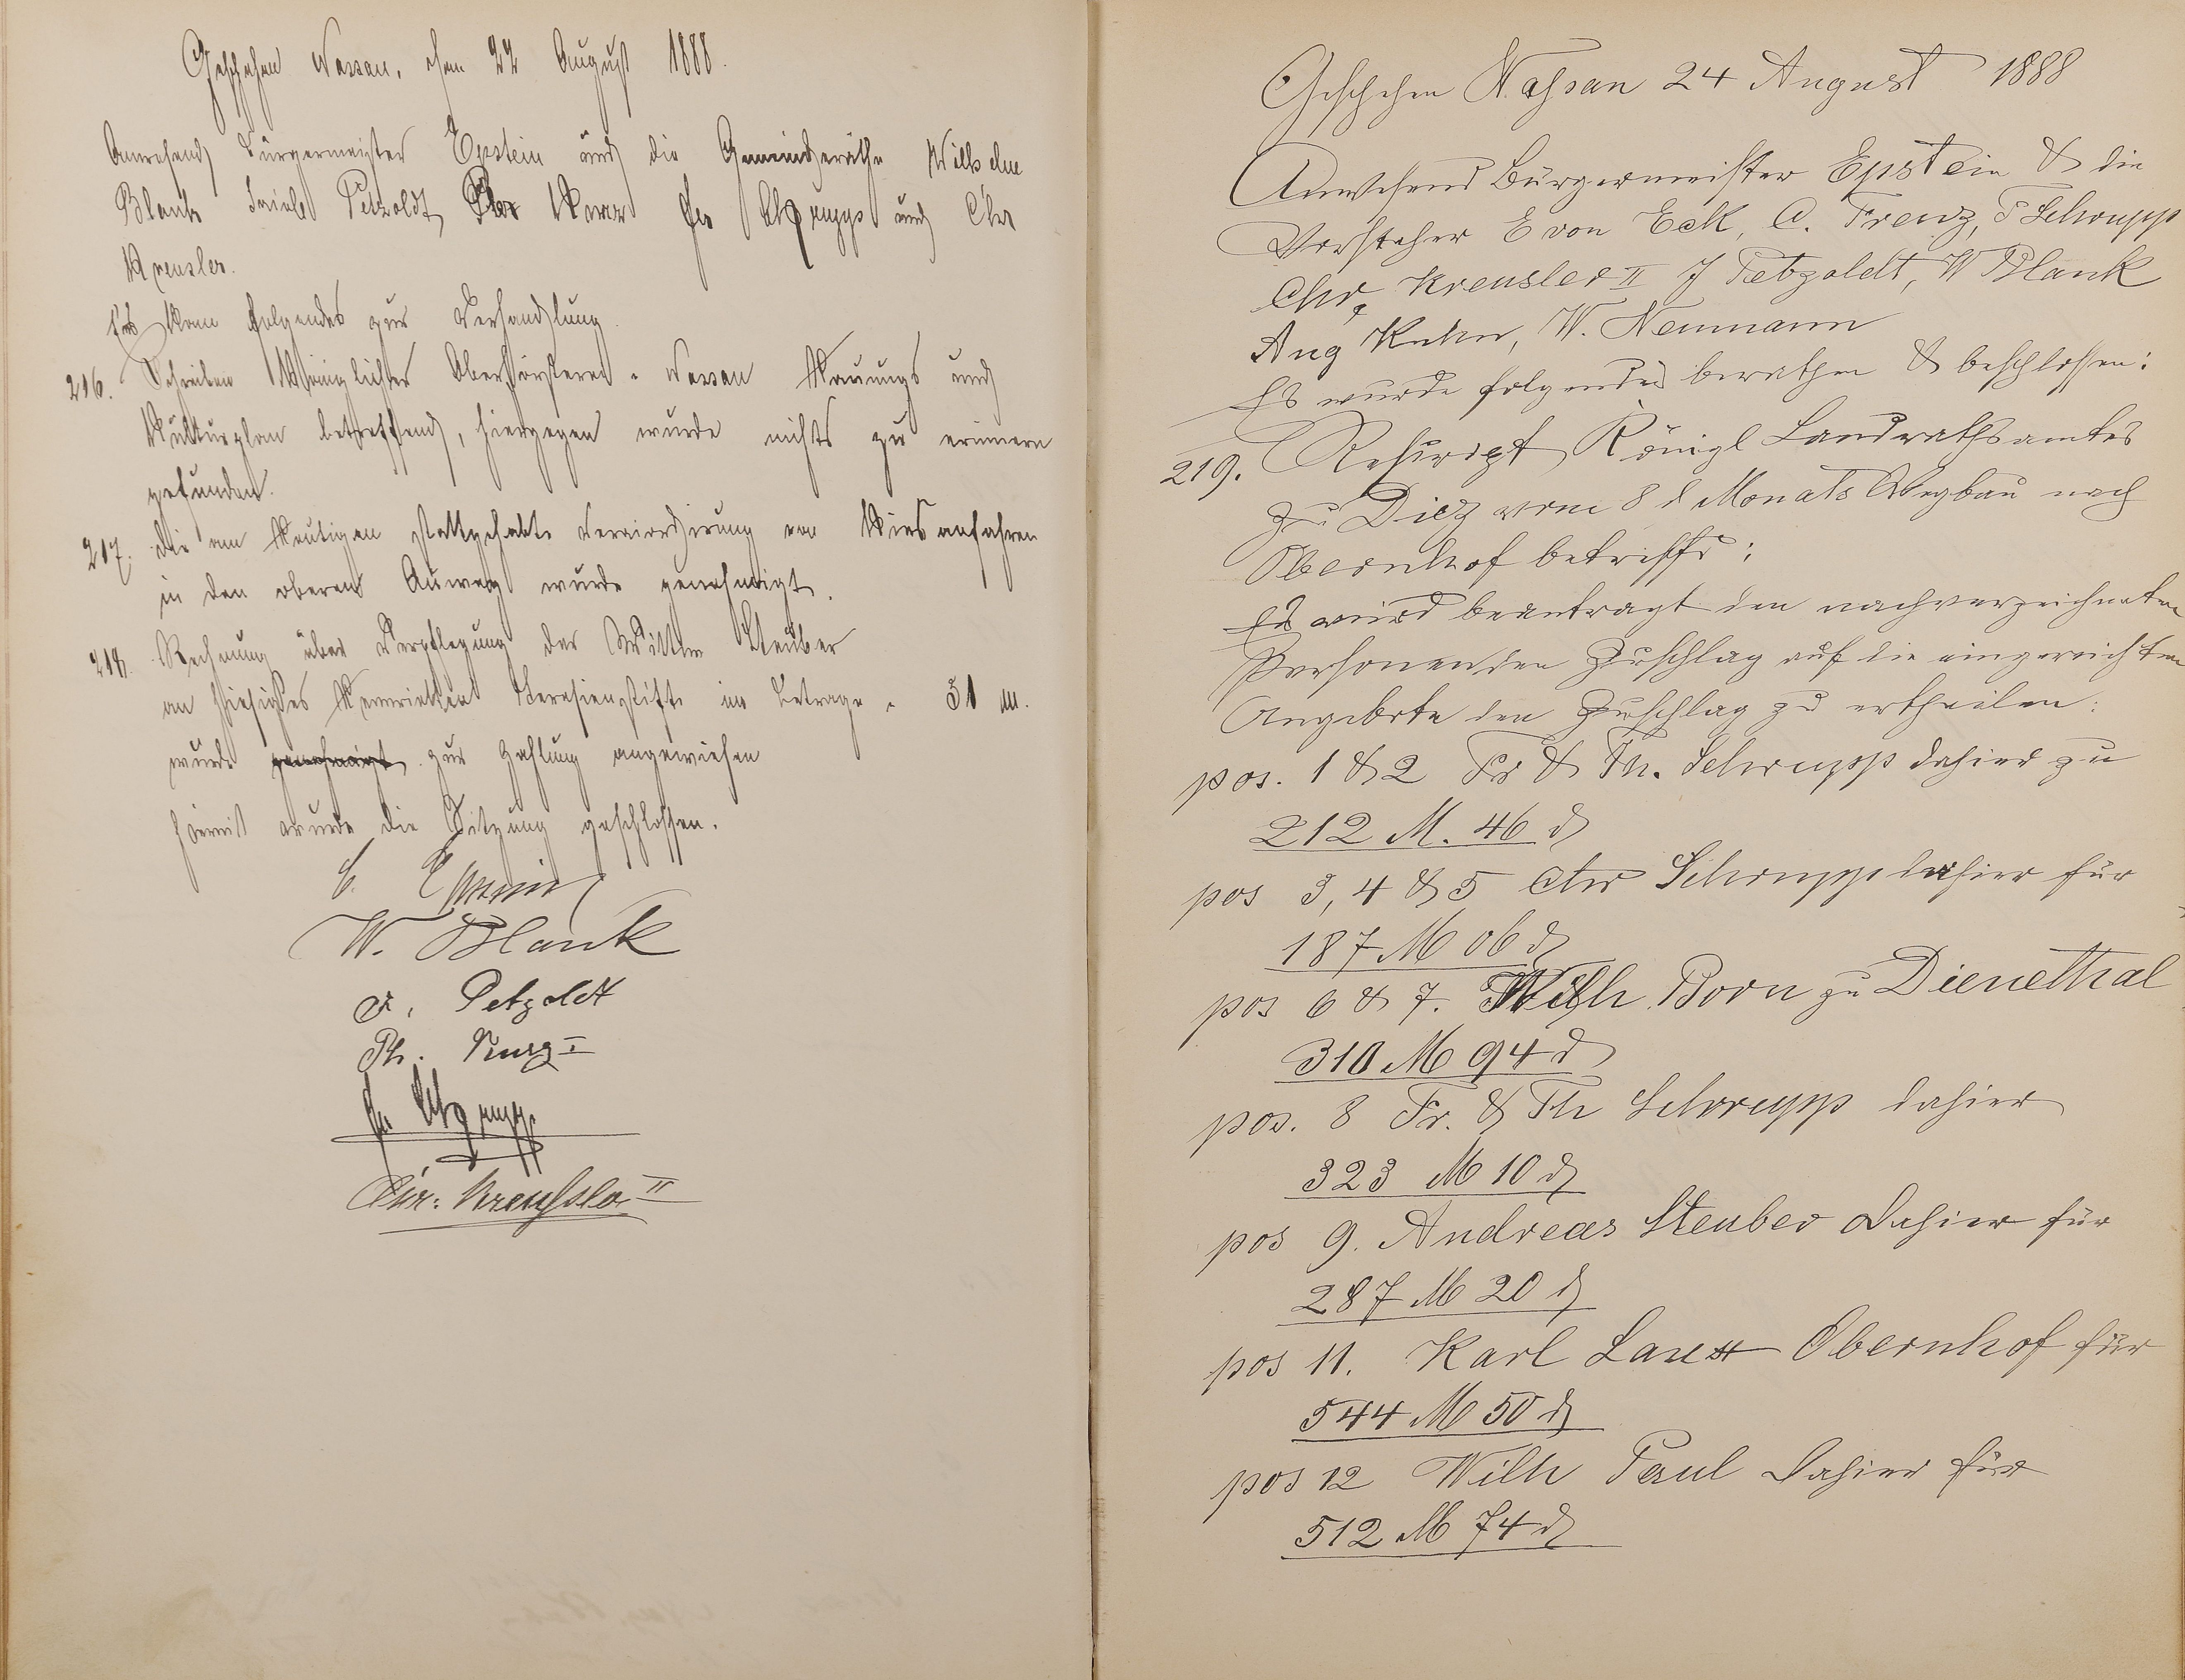 Geschehen Nassau, den 22 August 1888.
Anwesend Bürgermeister Epstein und die Gemeinderäthe Wilhelm
Blank Petzoldt, Fr Schrupp und Chr
Kreusler.
Es kam folgendes zur Verhandlung.
216. Schreiben Königlicher Oberförsterei Nassau Hauungs und
Kulturplan betreffend, hiergegen wurde nichts zu erinnern
gefunden.
217. Die am Heutigen stattgehabte Veraccordirung von Kiesanfahren
in den oberen Auweg wurde genehmigt.
218. Rechnung über Verpflegung der Wittw Steuber
an hiesiges Henrietten Theresienstift im Betrage v 31 M.
wurde genehmigt zur Zahlung angewiesen
Hiermit wurde die Sitzung geschlossen.
C. Epstein
W. Blank
J. Petzoldt
Ph. Kurz I
Fr Schrupp
Chr: Kreusler II
Geschehen Nassau 24 August 1888
Anwesend Bürgermeister Epstein & die
Vorsteher E von Eck, C. Frenz, F Schrupp
Chr. Kreusler II J Petzoldt, W Blank
Aug Kuhn, W. Neumann
Es wurde folgendes berathen & beschlossen:
219. Rescript Königl Landrathsamtes
zu Diez vom 8 d Monats Wegbau nach
Obernhof betreffd:
Es wird beantragt den nachverzeichneten
Personen den Zuschlag auf die eingereichten
Angebote den Zuschlag zu ertheilen:
pos. 1 & 2 Fr & Th. Schrupp dahier zu
212 M. 46 ₰
pos 3, 4 & 5 Chr Schrupp dahier für
187 M 06 ₰
pos 6 & 7. Wilh Born zu Dienethal
310 M 94 ₰
pos. 8 Fr. & Th Schrupp dahier
323 M 10 ₰
pos 9. Andreas Steuber dahier für
287 M 20 ₰
pos 11. Karl Obernhof für
544 M 50 ₰
pos 12 Wilh Paul dahier für
512 M 74 ₰